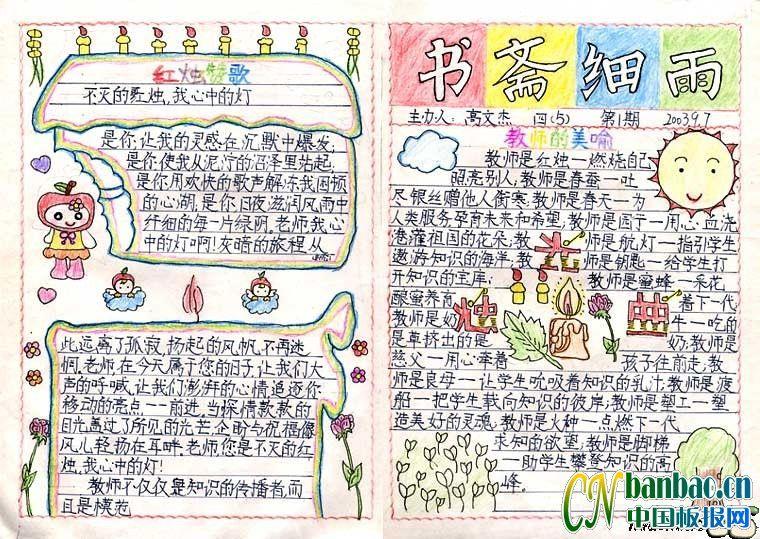 红烛颂歌
不灭的红烛,我心中的灯
是你,让我的灵感在沉默中爆发,
是你使我从泥泞的沼泽里站起,
是你用欢快的歌声解冻我困顿
的心湖,是你日夜滋润风雨中
纤细的每一片绿阴,老师,我心
中的灯啊!灰暗的旅程,从
此远离了孤寂,扬起的风帆,不再迷
惘,老师,在今天属于您的日子,让我们大
声的呼喊,让我们澎湃的心情追逐你
移动的亮点一一前进,当深情款款的
目光,盖过了所见的光芒,企盼与祝福像
风儿,轻扬在耳畔,老师,您是不灭的红
烛,我心中的灯!
教师不仅仅是知识的传播者,而
且是模范
书斋细雨
主办人:高文杰 四(5) 第1期 2003.9.7
教师的美喻
教师是红烛一燃烧自己
照亮别人;教师是春蚕一吐
尽银丝赠他人御寒;教师是春天一为
人类服务,孕育未来和希望;教师是园丁一用心血浇
灌祖国的花朵;教师是航灯一指引学生
遨游知识的海洋;教师是钥匙一给学生打
开知识的宝库;教师是蜜蜂一采花
酿蜜养育着下一代
教师是奶牛一吃的
是草挤出的是奶;教师是
慈父一用心牵着孩子往前走;教
师是良母一让学生吮吸着知识的乳汁,教师是渡
船一把学生载向知识的彼岸;教师是塑工一塑
造美好的灵魂;教师是火种一点燃下一代
求知的欲望;教师是脚梯
一助学生攀登知识的高
峰。
光
烛
典
CNbanbao.cn
中国板报网